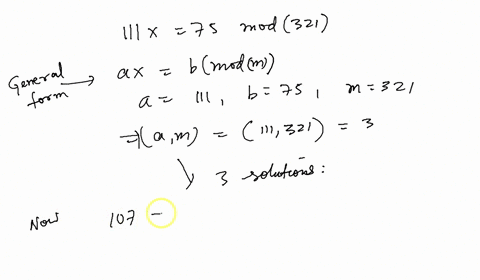 111 x = 75 mod (321)
General form → ax = b (mod(m)
a = 111, b = 75, m = 321
⇒ (a, m) = (111, 321) = 3
↘ 3 solutions:
Now 107 -